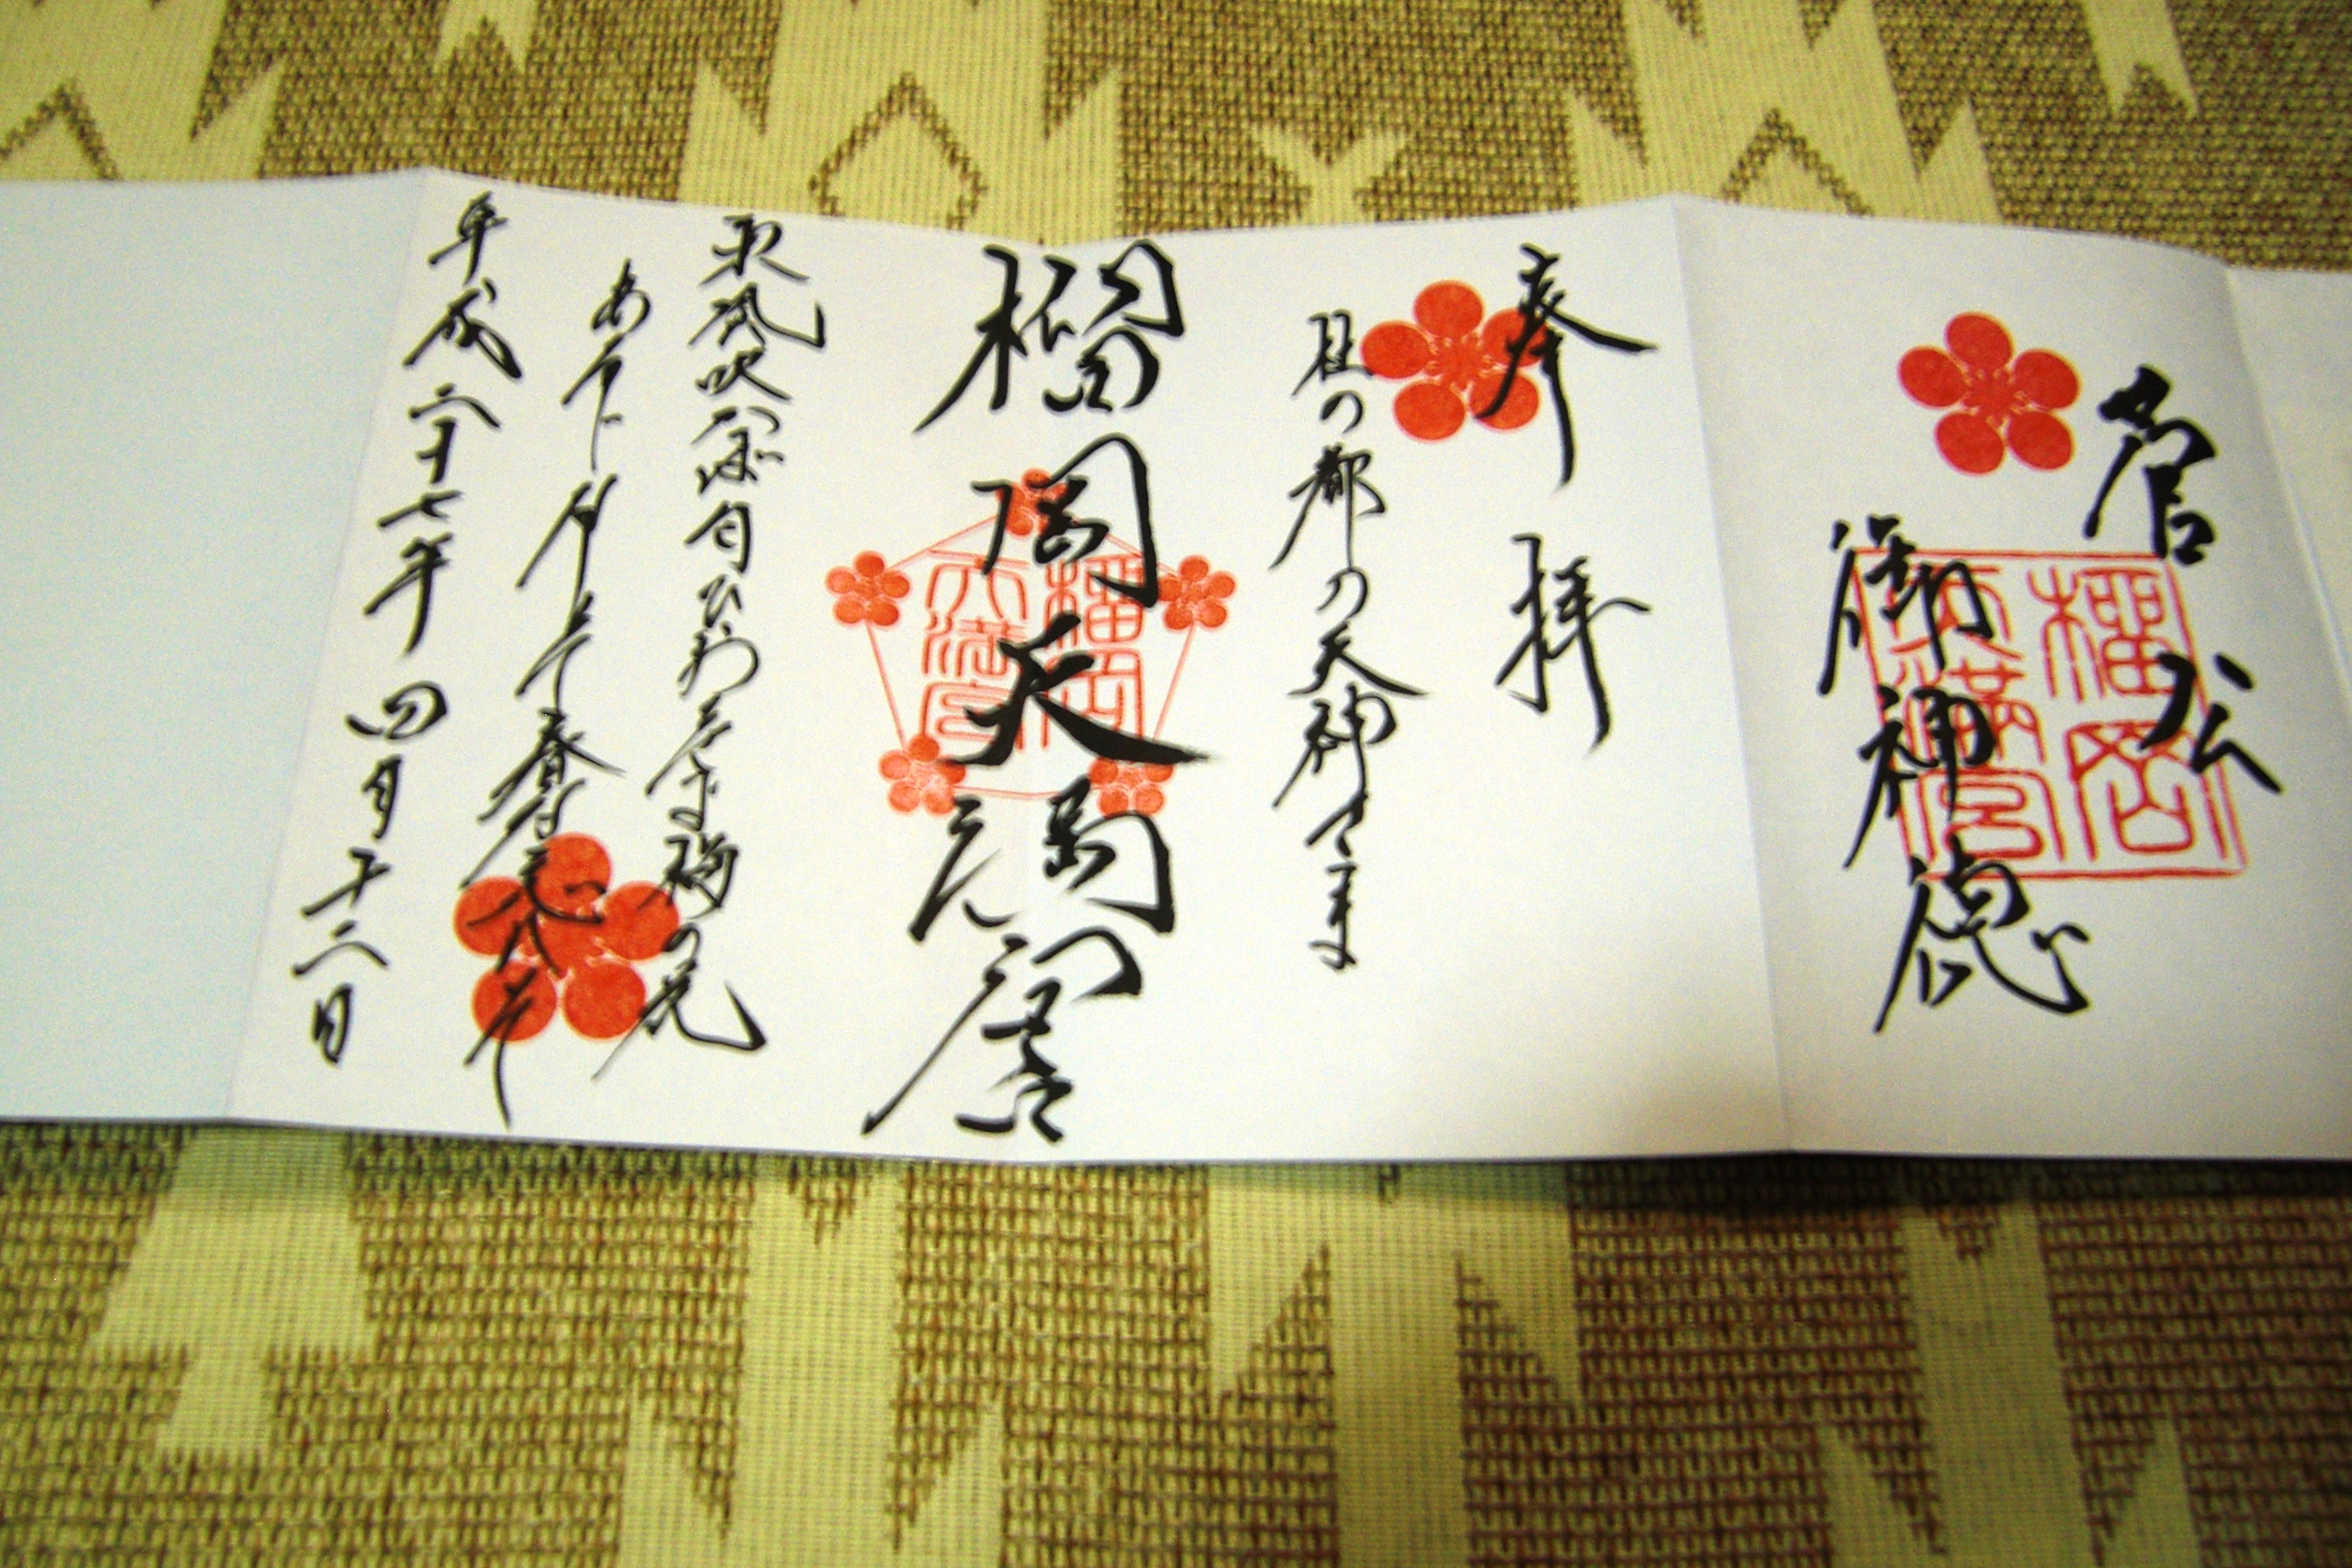 菅公
御神徳
榴岡
天満宮
奉拝
杜の都の天神さま
榴岡天満宮
榴岡
天満宮
東風吹かば匂ひおこせよ梅の花
あるじなしとて春な忘れそ
平成二十七年四月十二日